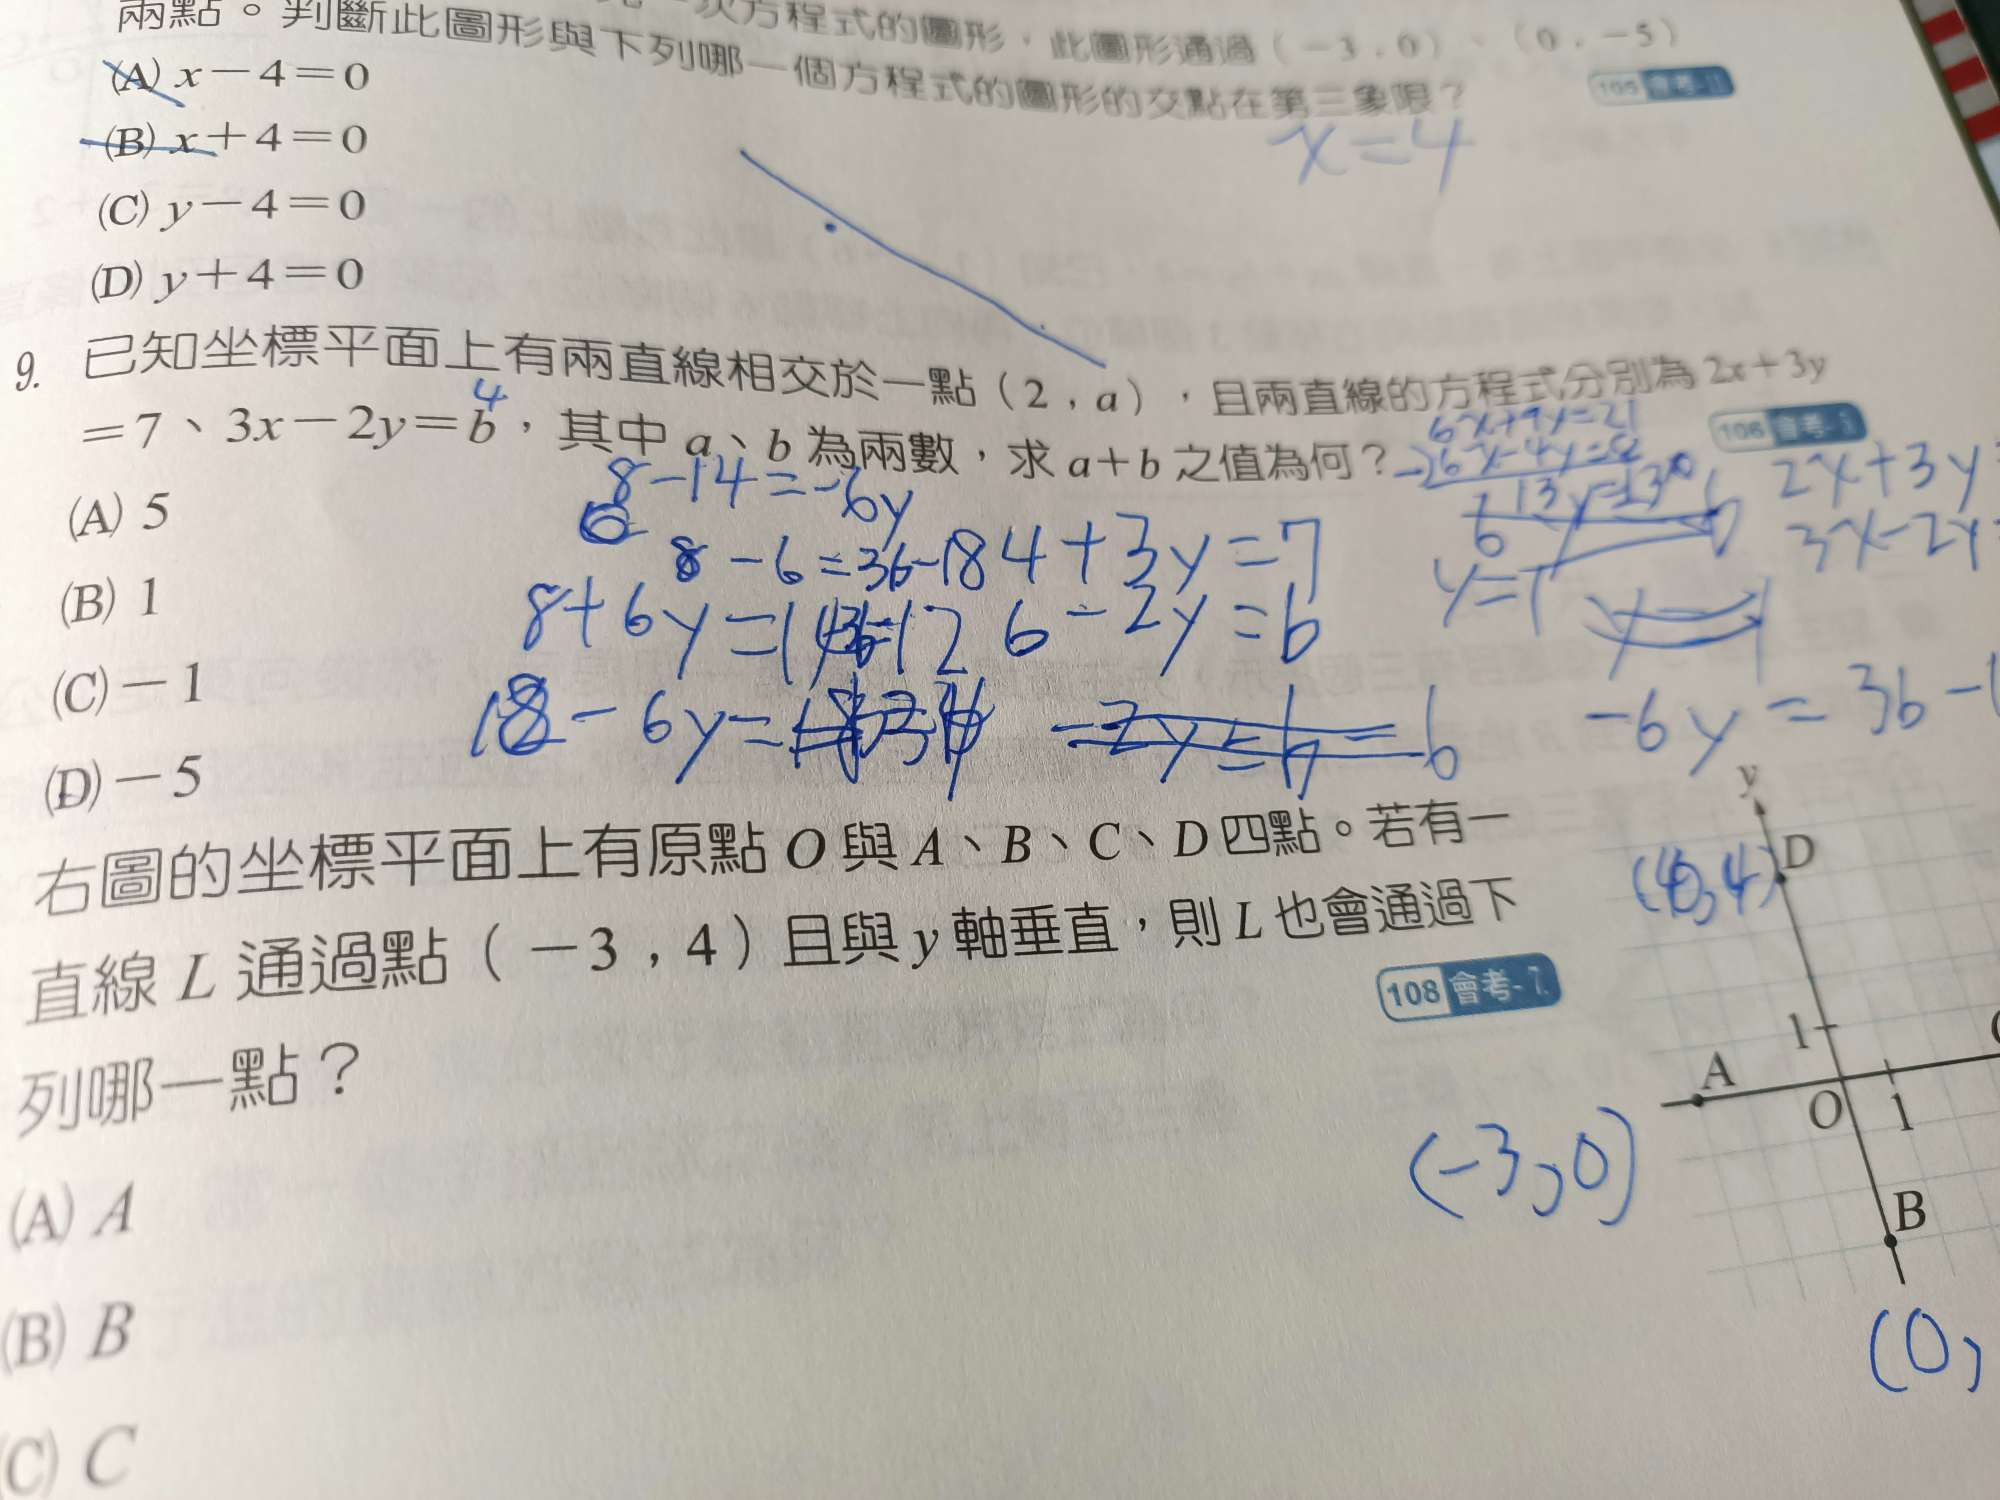 次方程式的圖形，此圖形通過（－3 , 0）、（0 , －5）
兩點。判斷此圖形與下列哪一個方程式的圖形的交點在第三象限？
105 會考-11.
(A) x－4＝0
x=4
(B) x＋4＝0
(C) y－4＝0
(D) y＋4＝0
9. 已知坐標平面上有兩直線相交於一點（2 , a），且兩直線的方程式分別為 2x＋3y
＝7、3x－2y＝b，其中 a、b 為兩數，求 a＋b 之值為何？
4
106 會考
6x+9y=21
2x+3y
3x-2y=
(A) 5
8-14=-6y
8-6=3b-18
4+3y=7
y=1
(B) 1
8+6y=14
6-2y=b
(C)－1
18-6y=
-6y=3b-1
(D)－5
右圖的坐標平面上有原點 O 與 A、B、C、D 四點。若有一
直線 L 通過點（－3 , 4）且與 y 軸垂直，則 L 也會通過下
列哪一點？
108 會考-7.
(A) A
(B) B
(C) C
y
D
1
A
O
1
B
(-3,0)
(0,